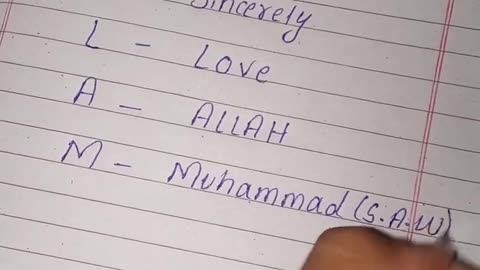 Sincerely
L - Love
A - ALLAH
M - Muhammad (S.A.W)